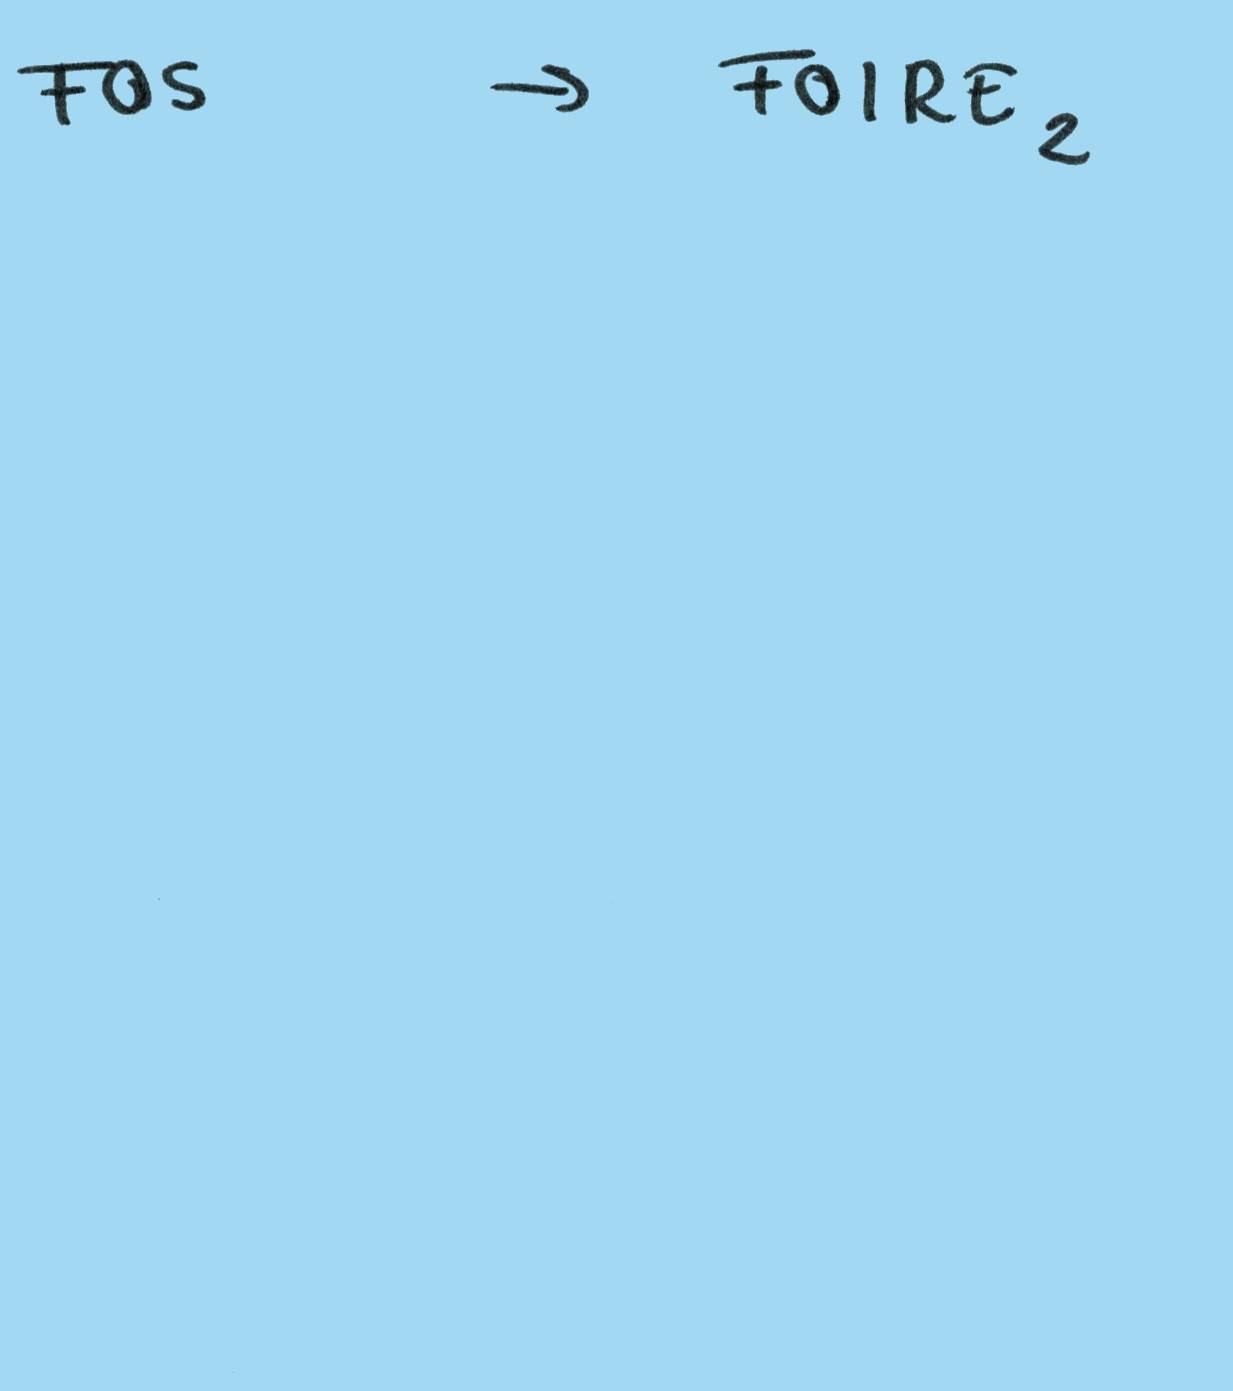 FOS → FOIRE2